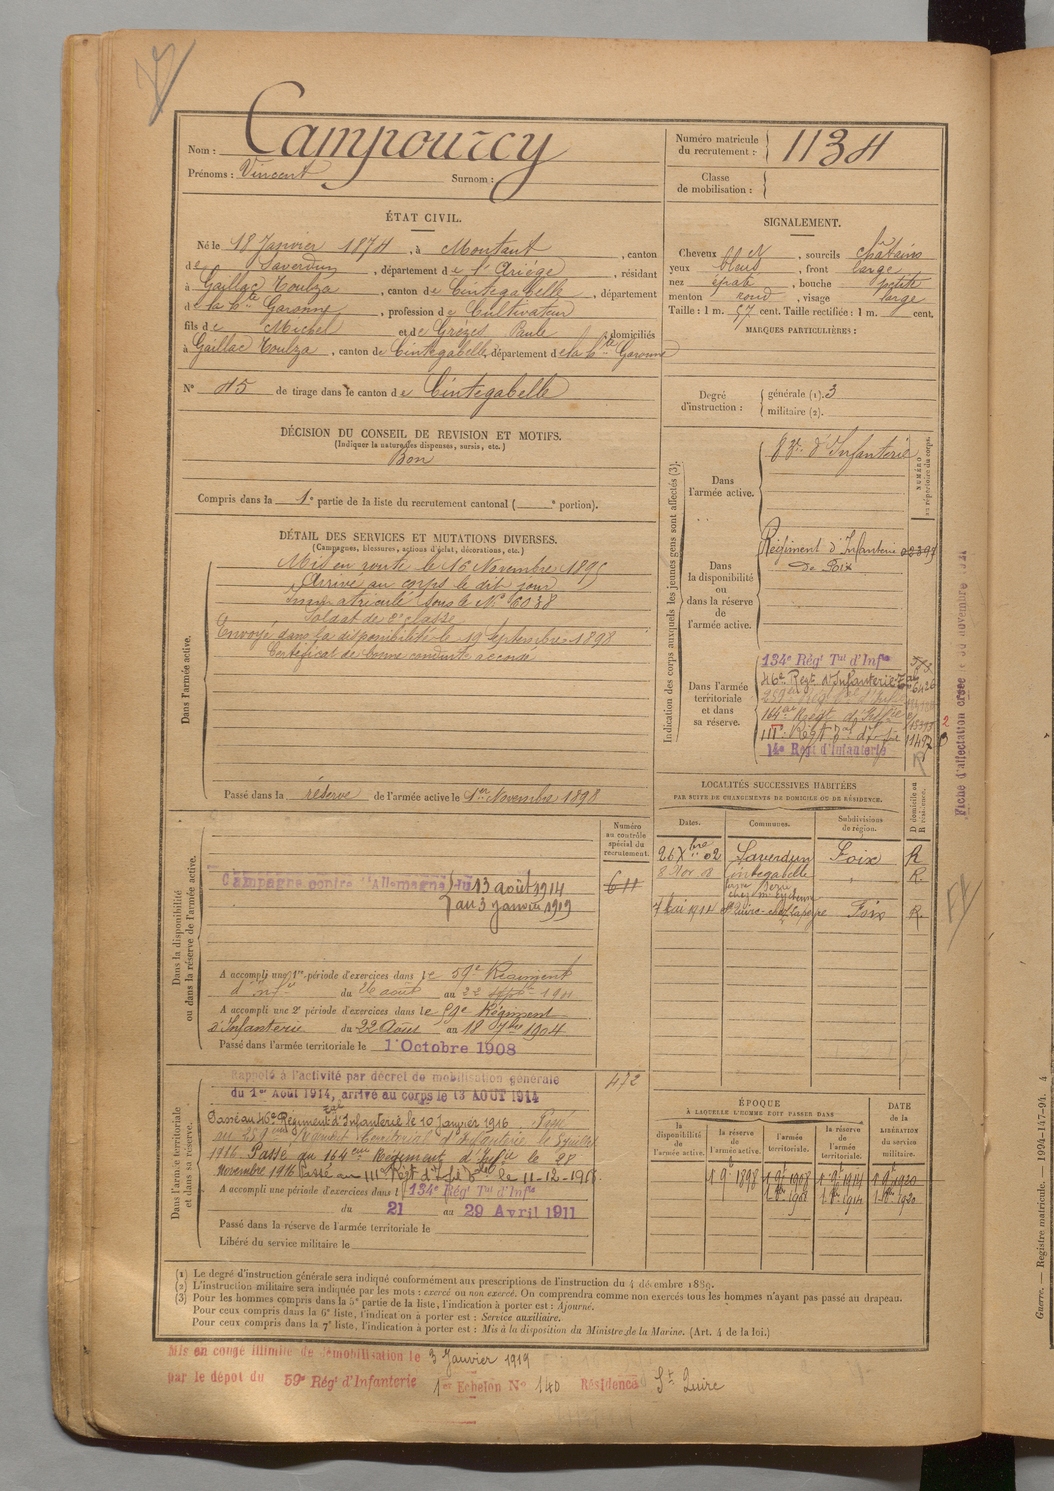 Nom : Campourcy
Prénoms : Vincent Surnom :
Numéro matricule du recrutement : 1134
Classe de mobilisation :
ÉTAT CIVIL.
Né le 18 Janvier 1874, à Montaut, canton
de Saverdun, département de l'Ariège, résidant
à Gaillac Toulza, canton de Cintegabelle, département
de la Hte Garonne, profession de Cultivateur
fils de Michel et de Grèzes Paule domiciliés
à Gaillac Toulza, canton de Cintegabelle, département de la Hte Garonne
N° 45 de tirage dans le canton de Cintegabelle
SIGNALEMENT.
Cheveux, sourcils châtains
yeux bleus, front large
nez épaté, bouche petite
menton rond, visage large
Taille : 1 m. 57 cent. Taille rectifiée : 1 m. cent.
MARQUES PARTICULIÈRES :
Degré d'instruction :
générale (1). 3
militaire (2).
DÉCISION DU CONSEIL DE REVISION ET MOTIFS.
(Indiquer la nature des dispenses, sursis, etc.)
Bon
Compris dans la 1e partie de la liste du recrutement cantonal ( e portion).
DÉTAIL DES SERVICES ET MUTATIONS DIVERSES.
(Campagnes, blessures, actions d'éclat, décorations, etc.)
Dans l'armée active.
Mis en route le 16 Novembre 1895
Arrivé au corps le dit jour
Immatriculé sous le N° 6038
Soldat de 2e classe
Envoyé dans la disponibilité le 19 Septembre 1898
Certificat de bonne conduite accordé
Passé dans la réserve de l'armée active le 1er Novembre 1898
Indication des corps auxquels les jeunes gens sont affectés (3).
NUMÉRO au répertoire du corps.
Dans l'armée active.
d'Infanterie
Dans la disponibilité ou dans la réserve de l'armée active.
Régiment d'Infanterie
de Foix
Dans l'armée territoriale et dans sa réserve.
134e Régt Tal d'Infie
46e Régt d'Infanterie
164me Régt d'Inftie
14e Régt d'Infanterie
Fiche d'affectation créée
Dans la disponibilité ou dans la réserve de l'armée active.
Numéro au contrôle spécial du recrutement.
Campagne contre l'Allemagne du 13 août 1914
au 3 Janvier 1919
611
A accompli une 1re période d'exercices dans le 59e Régiment
d'Infie du 26 août au 22 1901
A accompli une 2e période d'exercices dans le 59e Régiment
d'Infanterie du 22 Août au 18 7bre 1904
Passé dans l'armée territoriale le 1 Octobre 1908
LOCALITÉS SUCCESSIVES HABITÉES
PAR SUITE DE CHANGEMENTS DE DOMICILE OU DE RÉSIDENCE.
Dates. Communes. Subdivisions de région. D domicile ou R résidence.
26 Xbre 02 Saverdun Foix R
Cintegabelle R.
7 Mai 1914 Foix R.
Dans l'armée territoriale et dans sa réserve.
Rappelé à l'activité par décret de mobilisation générale
du 1er Août 1914, arrivé au corps le 13 AOUT 1914
472
Passé au 46e Régiment d'Infanterie le 10 Janvier 1916. Passé
au 259 Régiment Territorial d'Infanterie le 5 juillet
1916. Passé au 164em Régiment d'Infie le 28
novembre 1916 Passé au 111e Régt d'Infie le 11-12-1916.
A accompli une période d'exercices dans l 134e Régt Tal d'Infie
du 21 au 29 Avril 1911
Passé dans la réserve de l'armée territoriale le
Libéré du service militaire le
ÉPOQUE
À LAQUELLE L'HOMME DOIT PASSER DANS
la disponibilité de l'armée active. la réserve de l'armée active. l'armée territoriale. la réserve de l'armée territoriale.
DATE de la LIBÉRATION du service militaire.
1 9bre 1898 1 9bre 1908 1 9bre 1914 1 9bre 1920
1 8bre 1908 1 8bre 1914 1 8bre 1920
(1) Le degré d'instruction générale sera indiqué conformément aux prescriptions de l'instruction du 4 décembre 1889.
(2) L'instruction militaire sera indiquée par les mots : exercé ou non exercé. On comprendra comme non exercés tous les hommes n'ayant pas passé au drapeau.
(3) Pour les hommes compris dans la 5e partie de la liste, l'indication à porter est : Ajourné.
Pour ceux compris dans la 6e liste, l'indication à porter est : Service auxiliaire.
Pour ceux compris dans la 7e liste, l'indication à porter est : Mis à la disposition du Ministre de la Marine. (Art. 4 de la loi.)
Mis en congé illimité de démobilisation le 3 Janvier 1919
par le dépôt du 59e Régt d'Infanterie 1er Echelon N° 140 Résidence St Quirc
Guerre. — Registre matricule. — 1994-147-94. 4